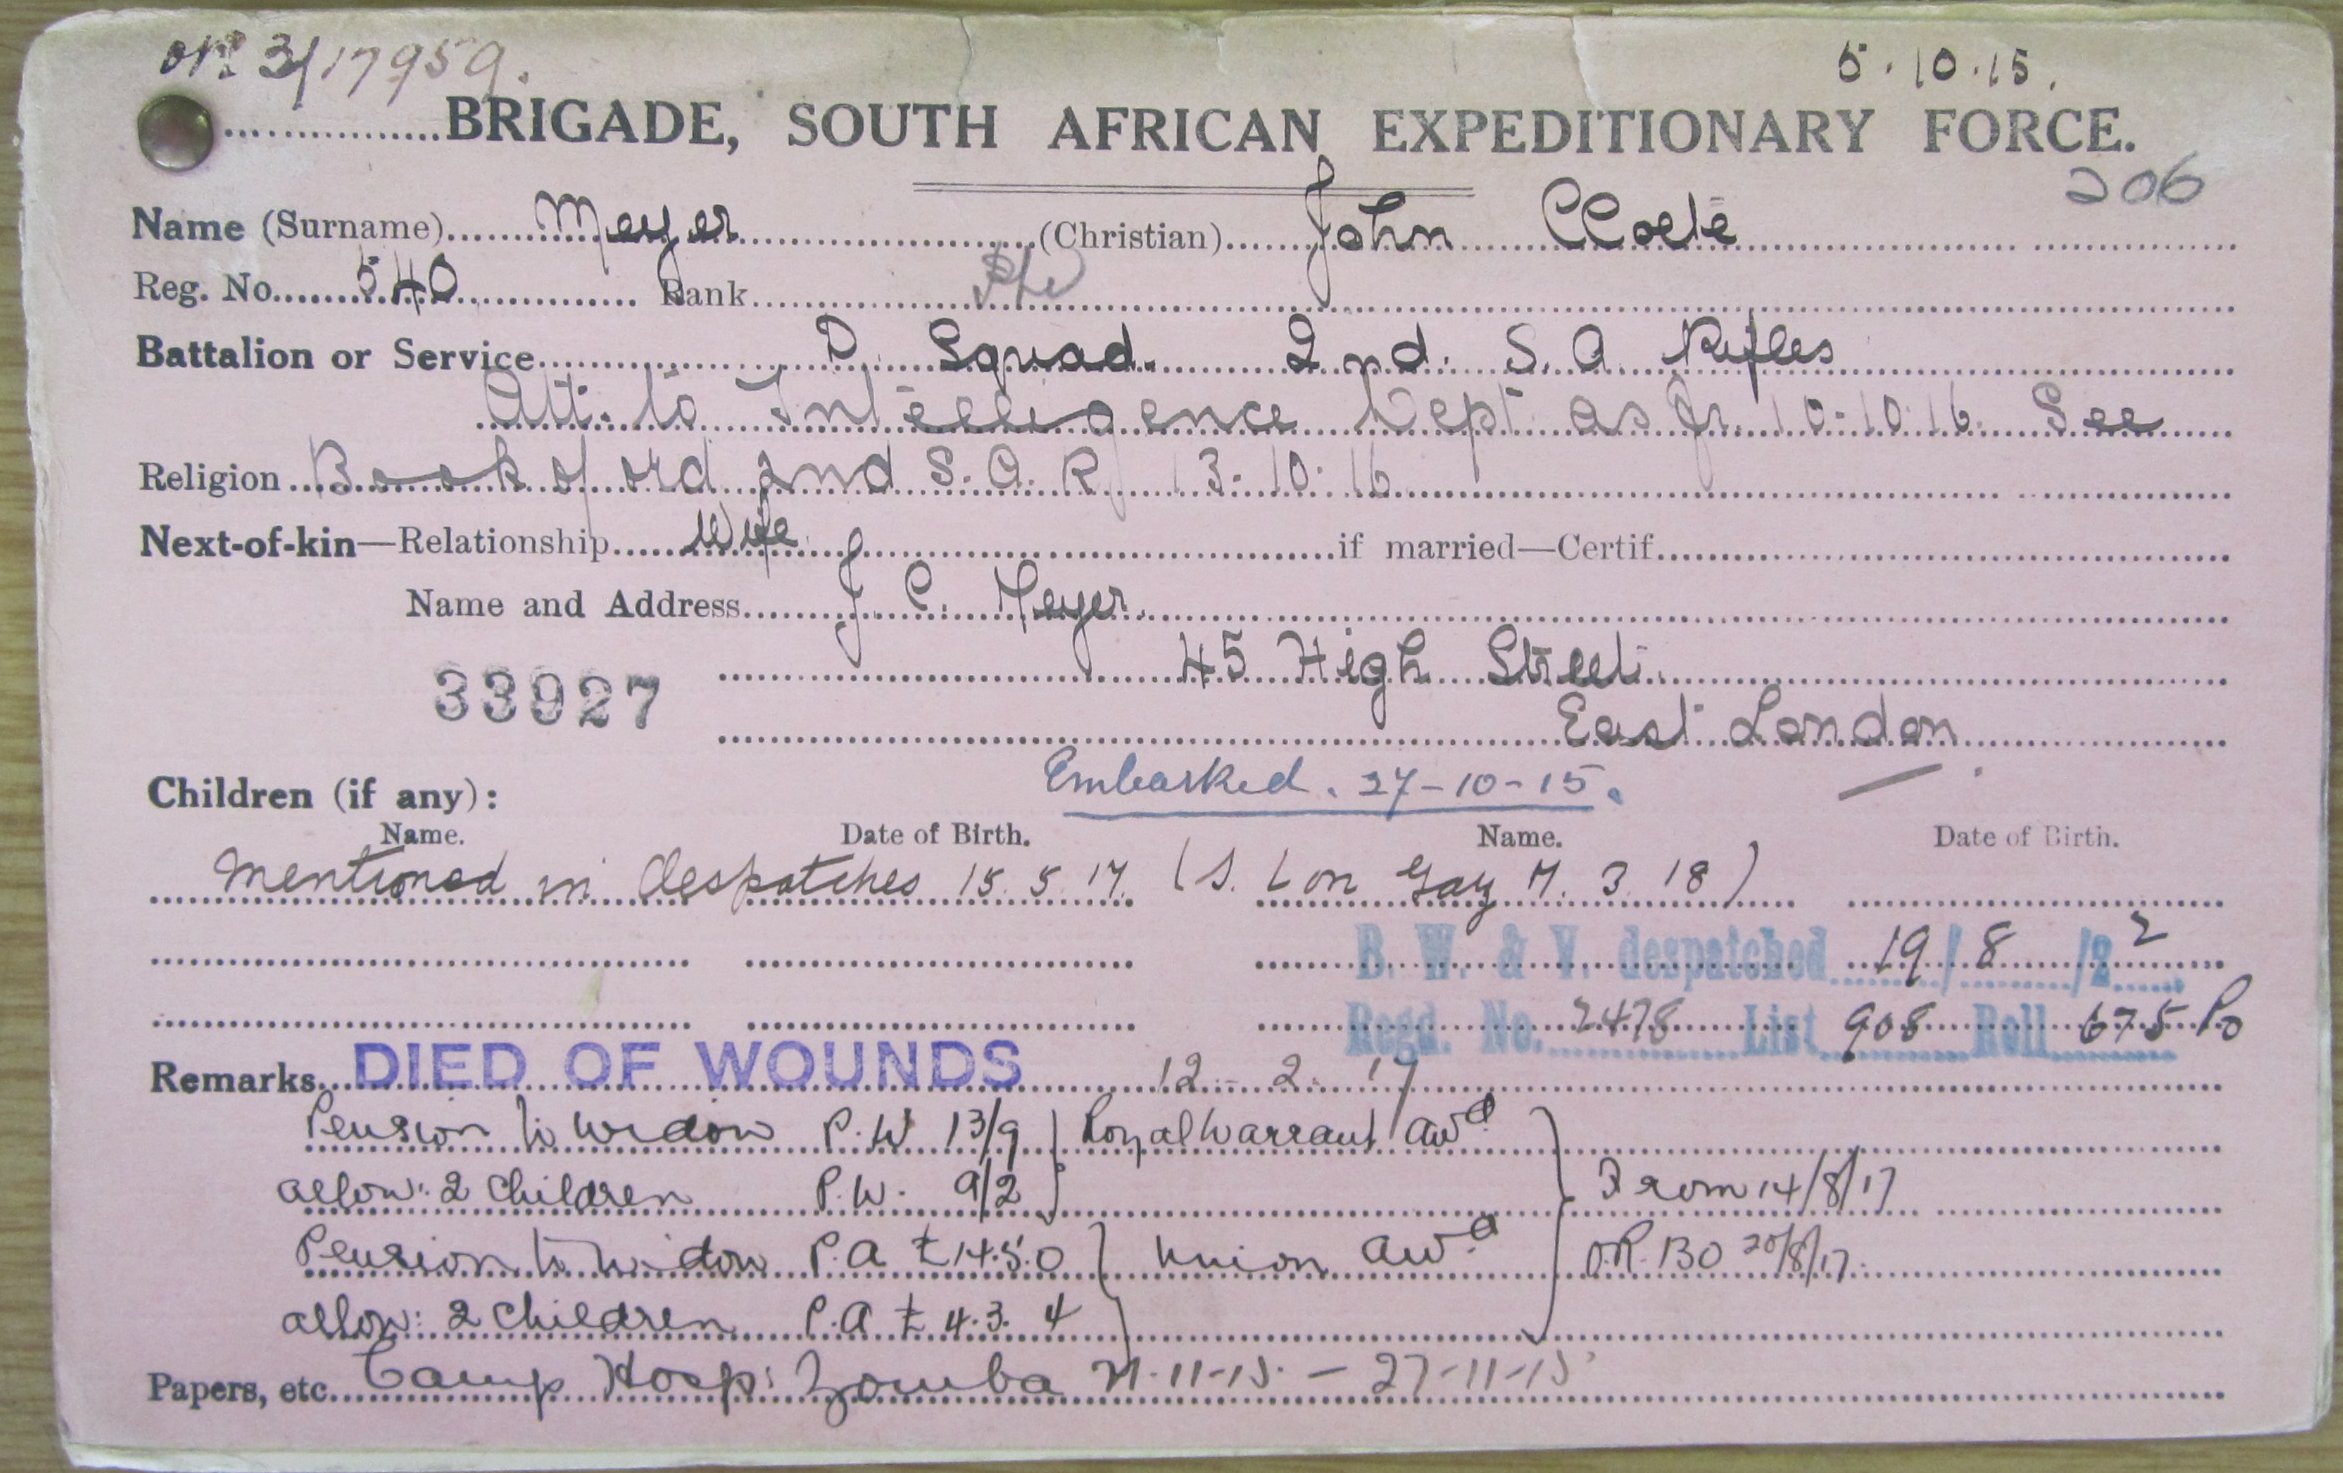 3/17959.
5.10.15.
BRIGADE, SOUTH AFRICAN EXPEDITIONARY FORCE.
206
Name (Surname) Meyer (Christian) John Cloete
Reg. No. 540 Rank Pte
Battalion or Service D. Squad. 2nd. S. A. Rifles
Att. to Intelligence Dept as fr. 10-10-16. See
Religion Book of ord 2nd S. A. R 13-10-16
Next-of-kin—Relationship Wife if married—Certif.
Name and Address J. C. Meyer.
45 High Street.
33927
East London.
Embarked. 27-10-15.
Children (if any):
Name. Date of Birth. Name. Date of Birth.
Mentioned in despatches 15.5.17. (S. Lon Gaz 7.3.18)
B. W. & V. despatched 19/8/22
Regd. No. 2478 List 908 Roll 675 Po
Remarks DIED OF WOUNDS 12-2-17
Pension to widow P.W 13/9 Royal Warrant Awd
allow: 2 children P.W. 9/2 From 14/8/17
Pension to widow P.A £14.5.0 Union Awd BO 20/8/17.
allow: 2 children P.A £4.3.4
Papers, etc. Camp Hosp: Zomba 21-11-15 - 27-11-15